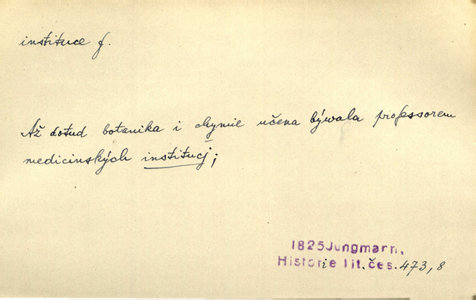 instituce f.
Až dotud botanika i chymie učena bývala professorem
medicinských institucj;
1825 Jungmann,
Historie lit. čes. 473,8